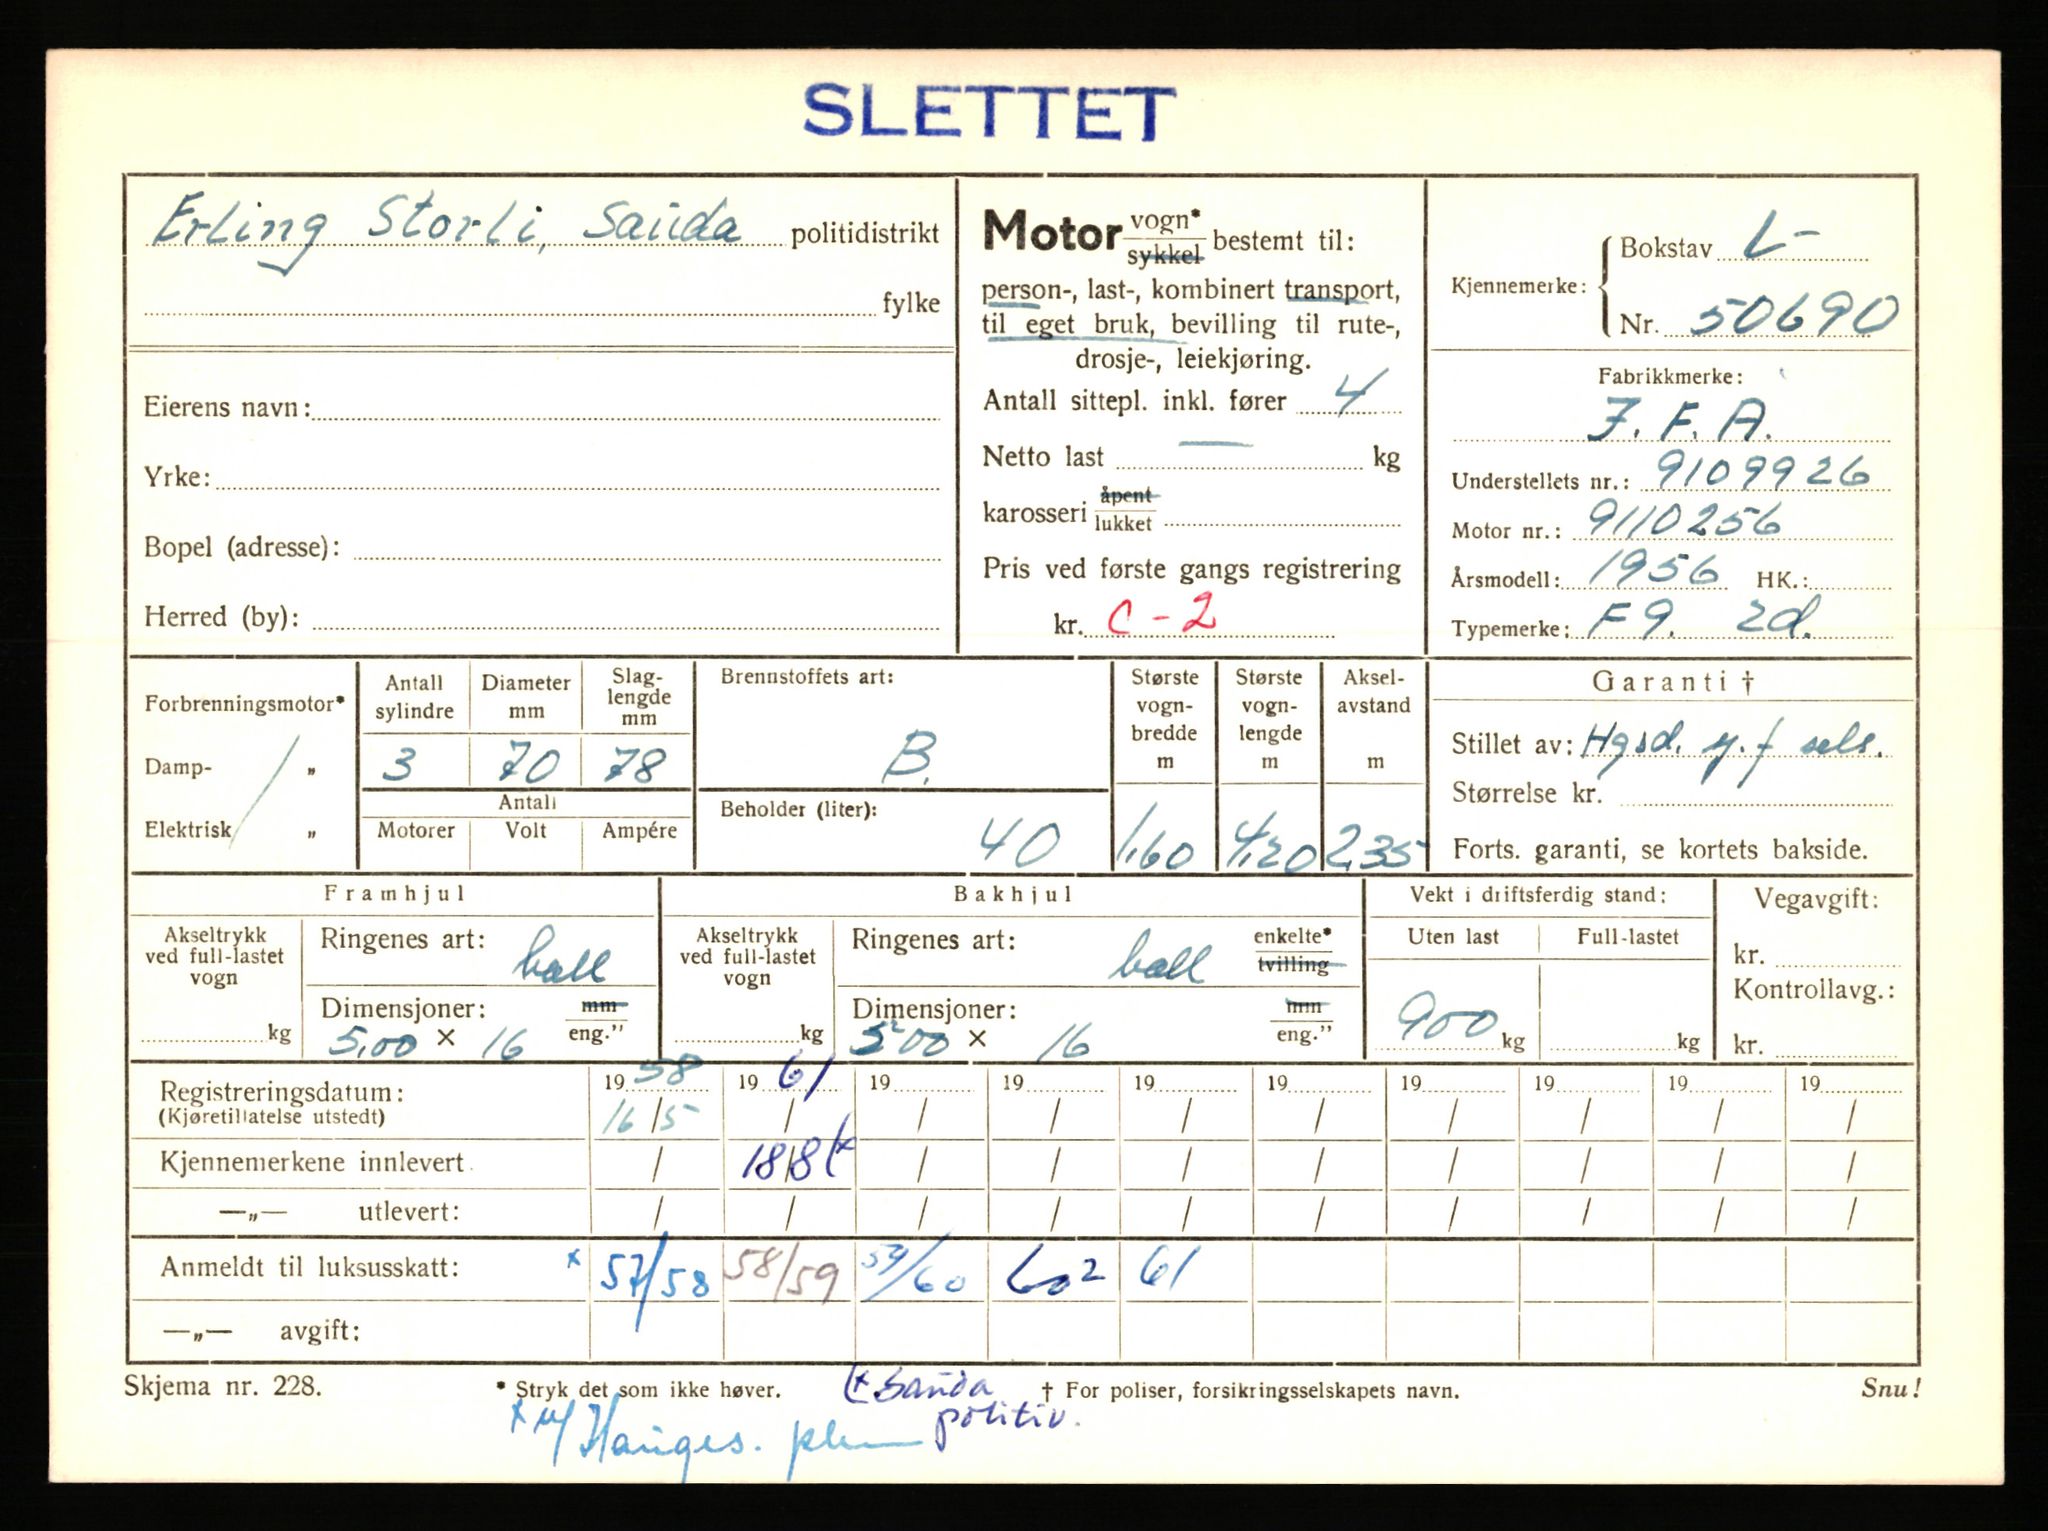 SLETTET
Erling Storli, Sauda politidistrikt
fylke
Eierens navn:
Yrke:
Bopel (adresse):
Herred (by):
Motor vogn* / sykkel bestemt til:
person-, last-, kombinert transport,
til eget bruk, bevilling til rute-,
drosje-, leiekjøring.
Antall sittepl. inkl. fører 4
Netto last — kg
karosseri åpent / lukket
Pris ved første gangs registrering
kr. C-2
Kjennemerke: Bokstav L-
Nr. 50690
Fabrikkmerke:
J. F. A.
Understellets nr.: 9109926
Motor nr.: 9110256
Årsmodell: 1956 HK.:
Typemerke: F9. 2d.
Forbrenningsmotor*
Damp- „
Elektrisk „
Antall sylindre 3
Diameter mm 70
Slag-lengde mm 78
Antall
Motorer Volt Ampére
Brennstoffets art:
B.
Beholder (liter):
40
Største vogn-bredde m 1,60
Største vogn-lengde m 4,20
Aksel-avstand m 2,35
Garanti †
Stillet av: Hgsd. y. f sels.
Størrelse kr.
Forts. garanti, se kortets bakside.
Framhjul
Akseltrykk ved full-lastet vogn
kg
Ringenes art: ball
Dimensjoner: mm / eng.”
5,00 × 16
Bakhjul
Akseltrykk ved full-lastet vogn
kg
Ringenes art: ball enkelte* / tvilling
Dimensjoner: mm / eng.”
5,00 × 16
Vekt i driftsferdig stand:
Uten last Full-lastet
900 kg kg
Vegavgift:
kr.
Kontrollavg.:
kr.
Registreringsdatum: 19 58 19 61 19 19 19 19 19 19 19 19
(Kjøretillatelse utstedt) 16/5 / / / / / / / / /
Kjennemerkene innlevert / 18/8 (x / / / / / / / /
—„— utlevert: / / / / / / / / / /
Anmeldt til luksusskatt: x 57/58 58/59 59/60 60² 61
—„— avgift:
Skjema nr. 228.
* Stryk det som ikke høver.
(x Sauda
politiv.
† For poliser, forsikringsselskapets navn.
Snu!
x Hauges.